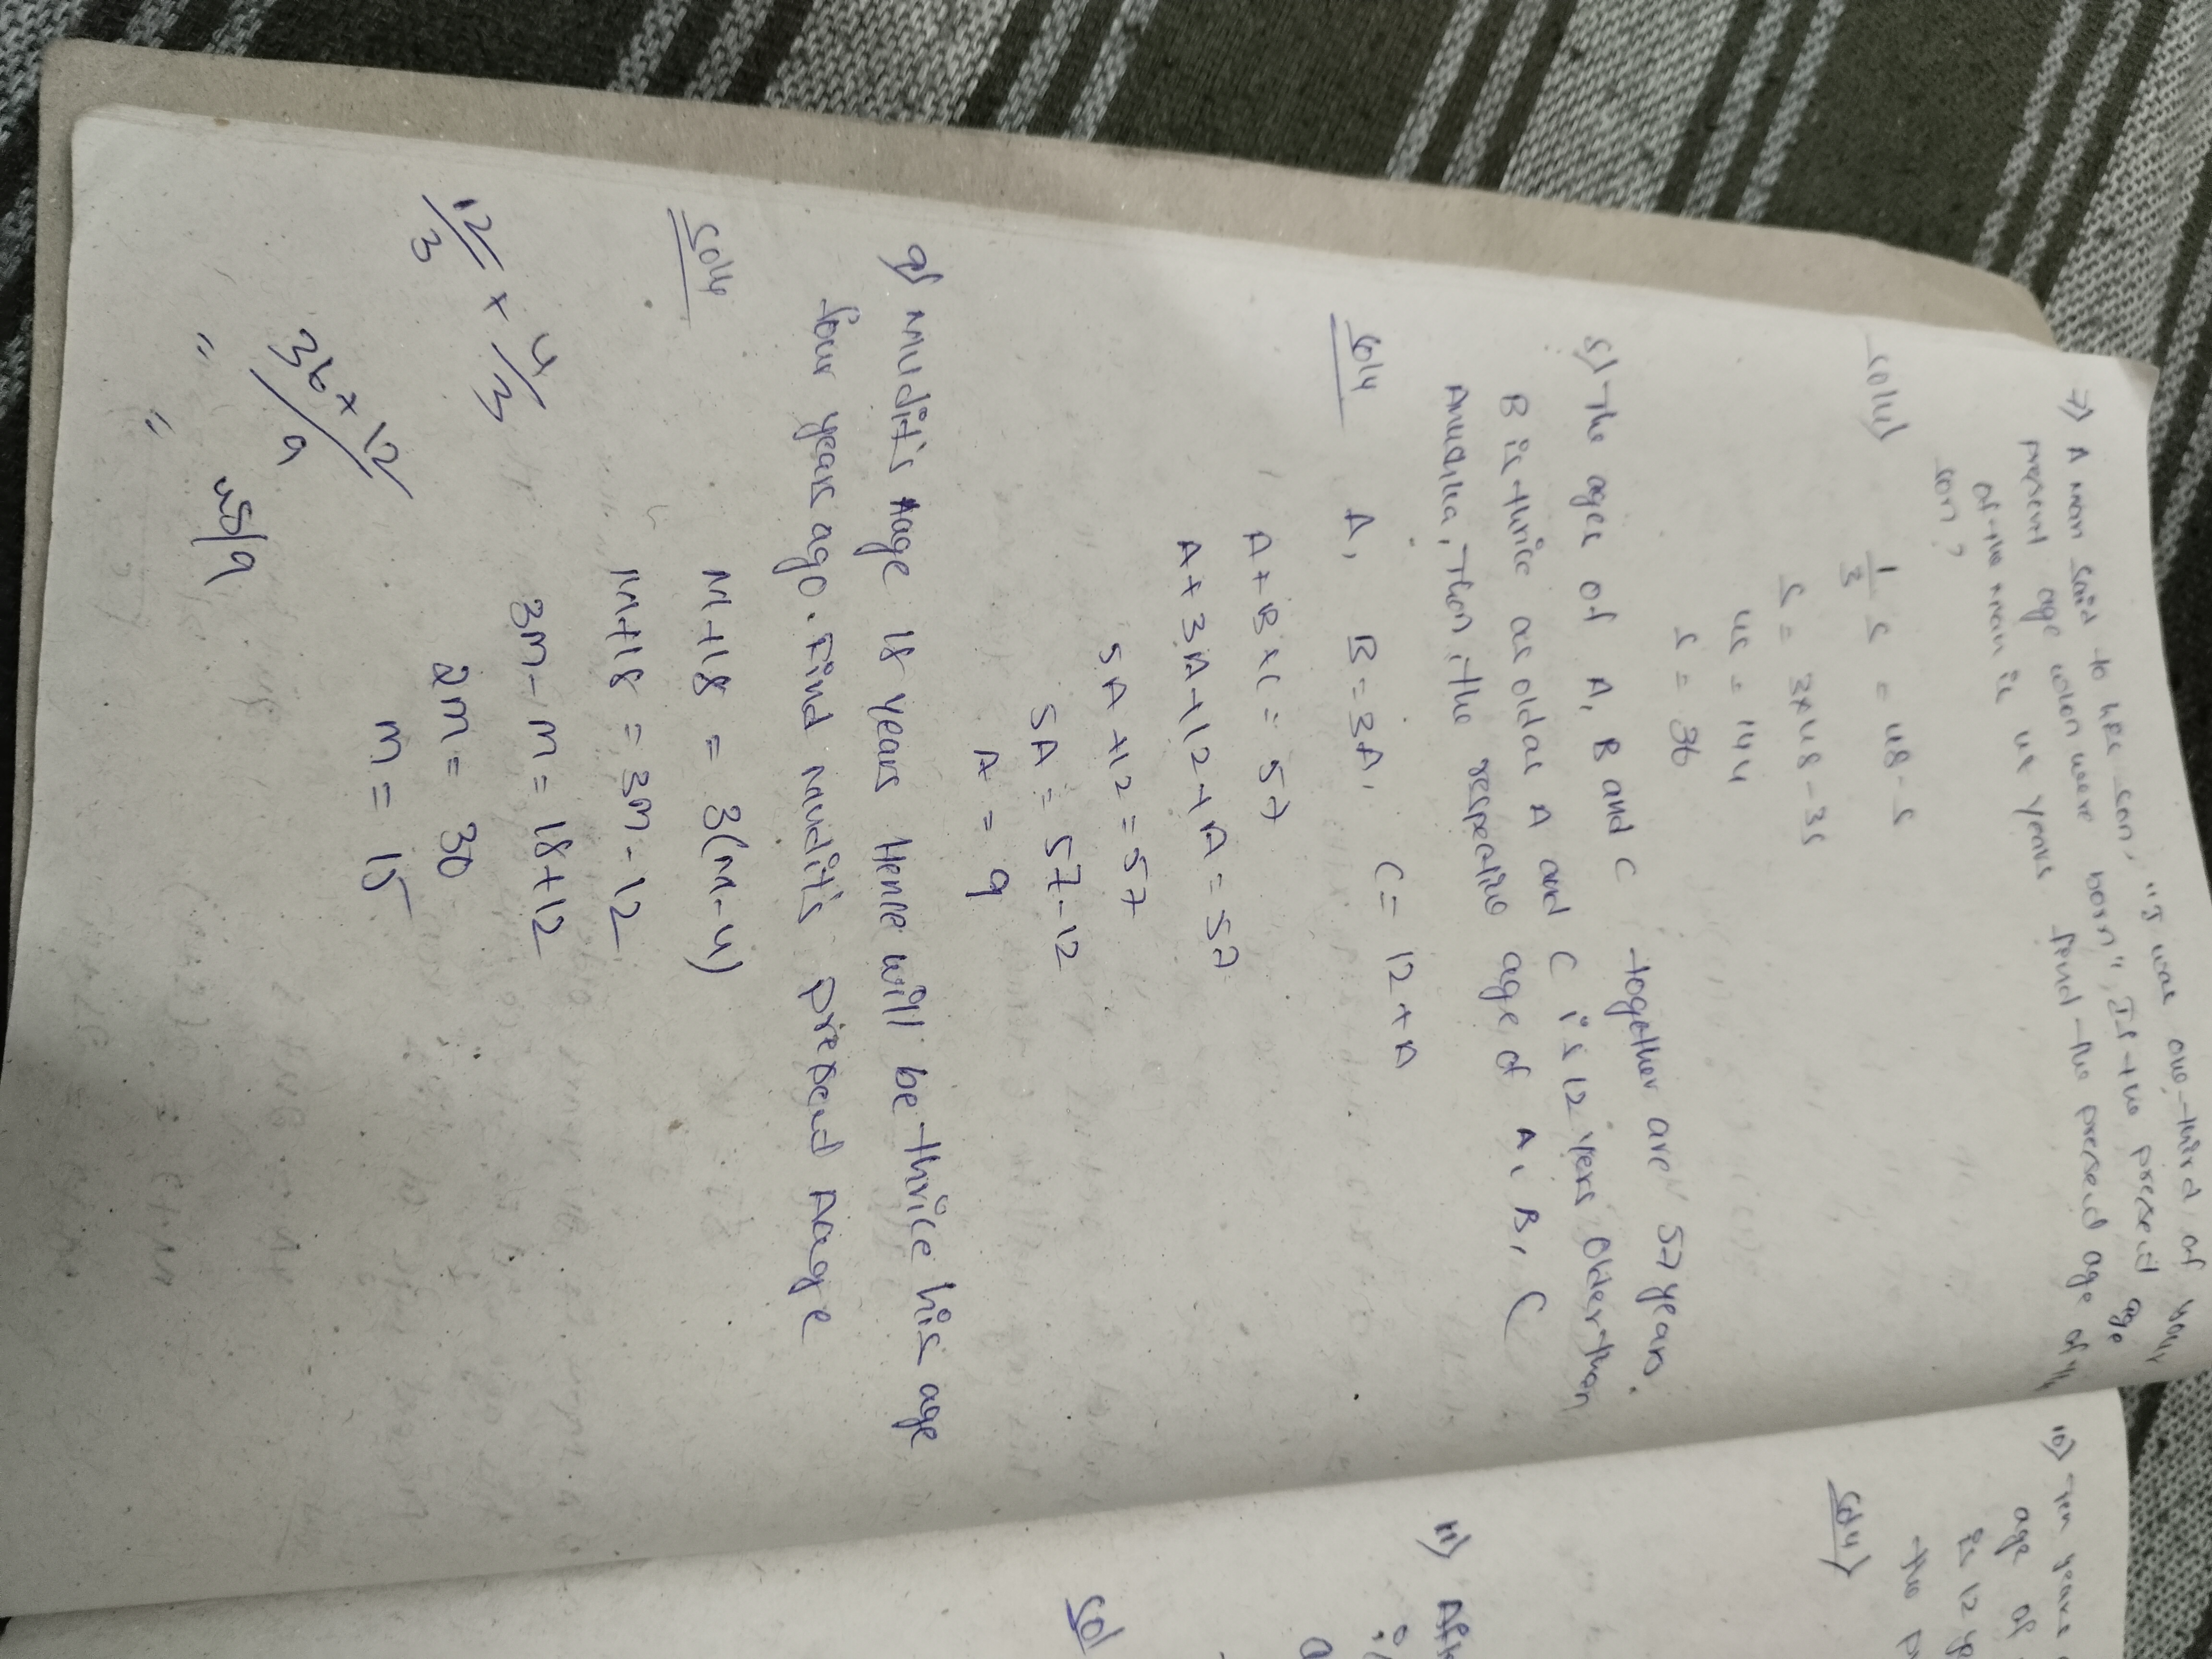 7) A man said to his son, "I was one-third of your
present age when were born", If the present age
of the man is 48 years find the present age of the
son?
soln)
1/3 s = 48-s
s = 3×48-3s
4s = 144
s = 36
8) The ages of A, B and C together are 57 years.
B is thrice as oldas A and C is 12 years older than
Then the respective age of A, B, C
soln
A, B=3A, C= 12+A
A+B+C= 57
A+3A+12+A=57
5A+12=57
5A=57-12
A = 9
9) Mudit's Aage 18 years Hence will be thrice his age
four years ago. Find Mudit's present Aage
soln
M+18 = 3(M-4)
M+18 = 3M-12
3M-M=18+12
2M= 30
M= 15
12/3 + 4/3
36+12/9
= 
= 
10) Ten years
age of
is 12
the
soln)
11)
sol